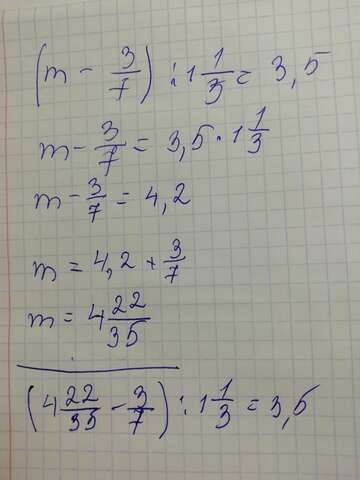 (m - 3/7) : 1 1/5 = 3,5
m - 3/7 = 3,5 · 1 1/3
m - 3/7 = 4,2
m = 4,2 + 3/7
m = 4 22/35
(4 22/35 - 3/7) : 1 1/3 = 3,5